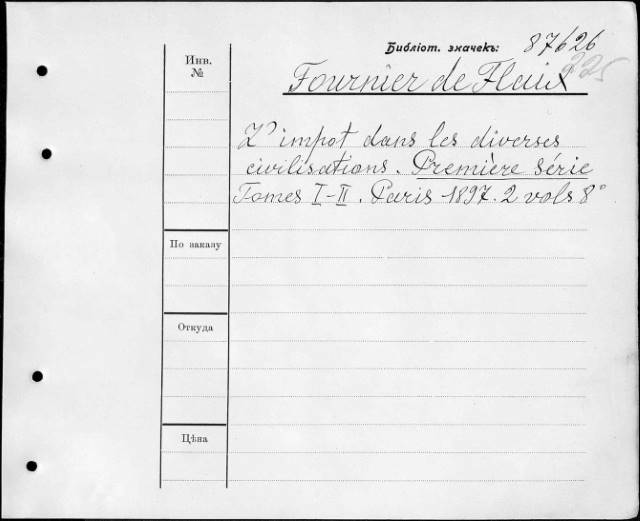 Библіот. значекъ: 87626
225
Инв.
№
Fournier de Flaix
L'impot dans les diverses
civilisations. Première série
Tomes I-II. Paris 1897. 2 vols 8°
По заказу
Откуда
Цѣна